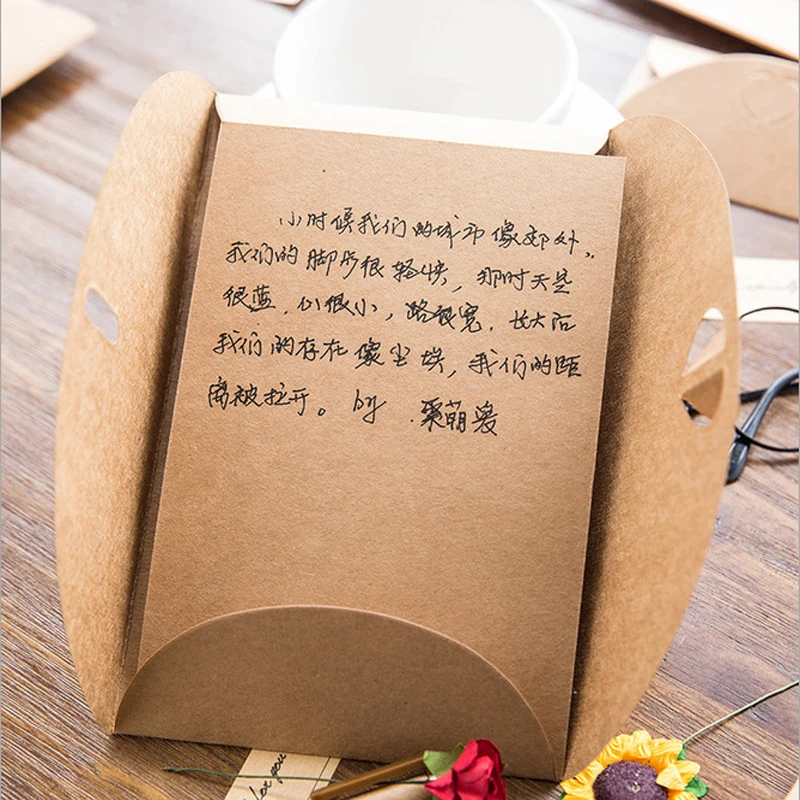 小时候我们的城市像郊外，
我们的脚步很轻快，那时天空
很蓝，心很小，路很宽，长大后
我们的存在像尘埃，我们的距
离被拉开。by 栗萌爱
for you